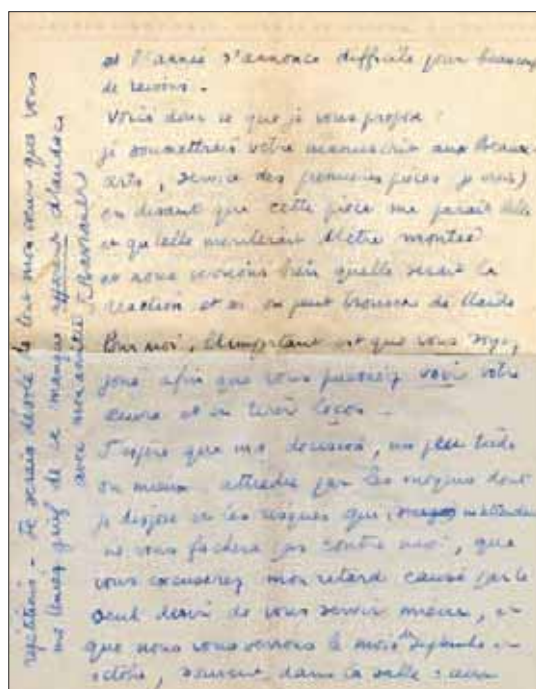 et l'année s'annonce difficile pour beaucoup
de raisons -
Voici donc ce que je vous propose :
je soumettrais votre manuscrit aux Beaux-
arts, service des premières pièces je crois)
en disant que cette pièce me paraît belle
et qu'elle mériterait d'être montée
et nous verrions bien quelle serait la
réaction et si on peut trouver de l'aide
Pour moi, l'important est que vous soyez
joué afin que vous puissiez voir votre
œuvre et en tirer leçon -
J'espère que ma décision, un peu
ou mieux par les moyens dont
je dispose et les risques qui m'attendent
ne vous fâchera pas contre moi, que
vous excuserez mon retard causé par le
seul désir de vous servir mieux, et
que nous vous verrons le mois de Septembre ou
octobre, souvent, dans la salle
répétitions - Je serais désolé de tout mon cœur que vous
me teniez grief de ce manque apparent d'audace
avec mon amitié